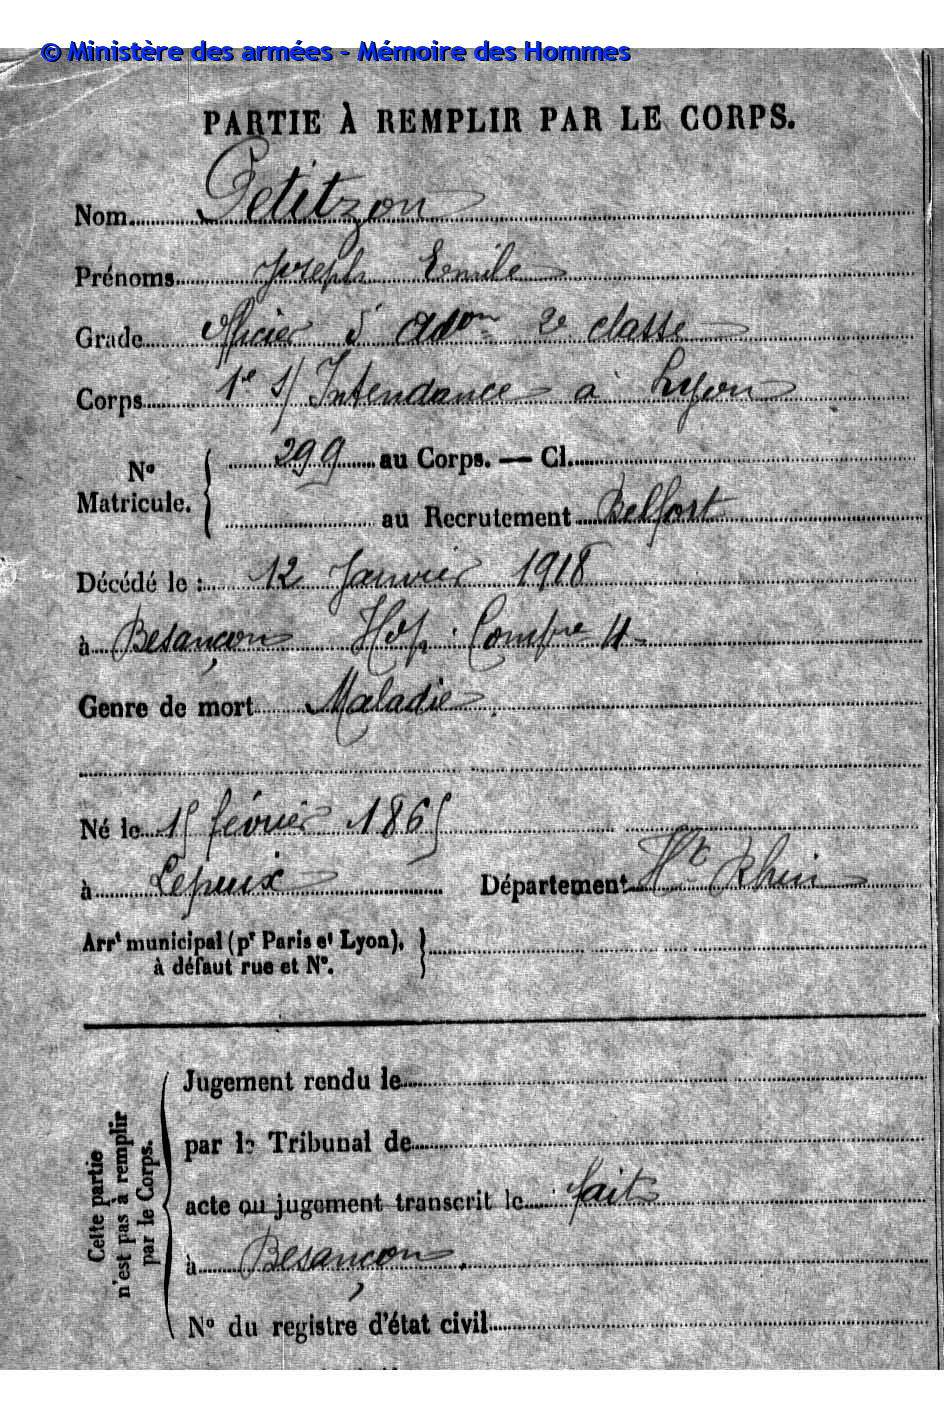 © Ministère des armées - Mémoire des Hommes
PARTIE À REMPLIR PAR LE CORPS.
Nom Petitzon
Prénoms Joseph Emile
Grade Officier d'adon 2e classe
Corps 1re S/Intendance à Lyon
No Matricule. { 299 au Corps. — Cl.
au Recrutement Belfort
Décédé le : 12 Janvier 1918
à Besançon Hop. Compre 11
Genre de mort Maladie
Né le 15 février 1865
à Lepuix Département Ht Rhin
Arrt municipal (pr Paris et Lyon), }
à défaut rue et No.
Cette partie
n'est pas à remplir
par le Corps.
Jugement rendu le
par le Tribunal de
acte ou jugement transcrit le fait
à Besançon.
No du registre d'état civil